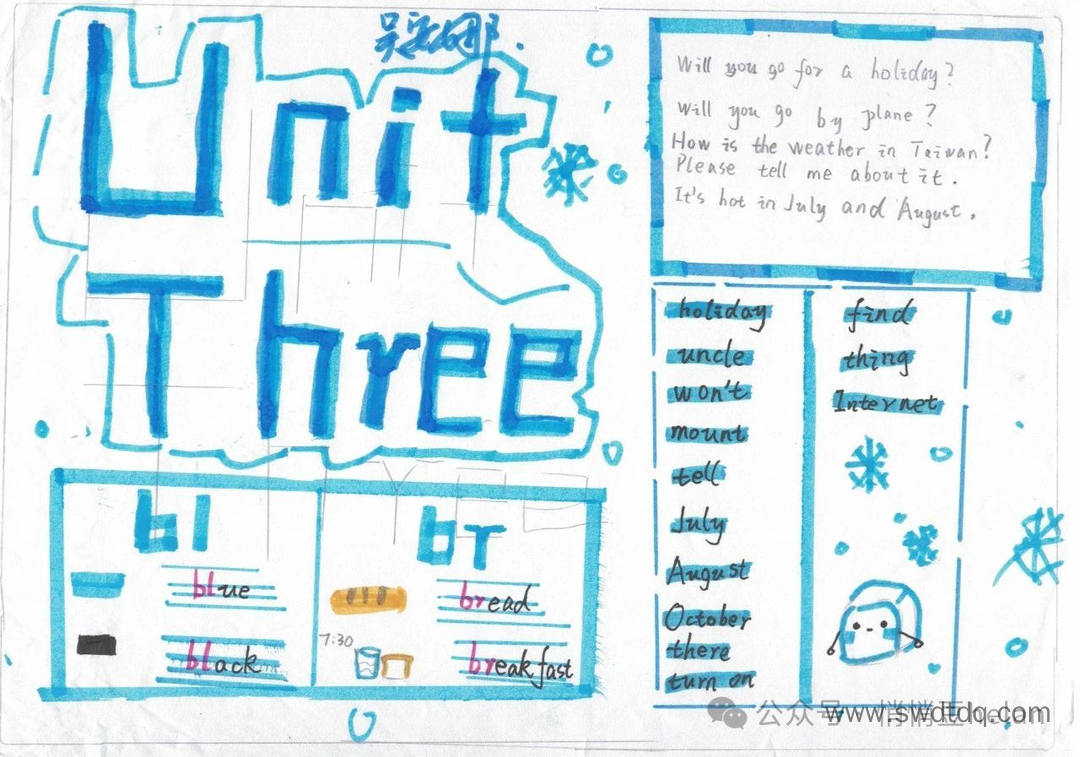 Unit
Three
Will you go for a holiday?
Will you go by plane?
How is the weather in Taiwan?
Please tell me about it.
It's hot in July and August.
holiday
uncle
won't
mount
tell
July
August
October
there
turn on
find
thing
Internet
bl
blue
black
br
bread
7:30
breakfast
公众号
www.swdtdq.com